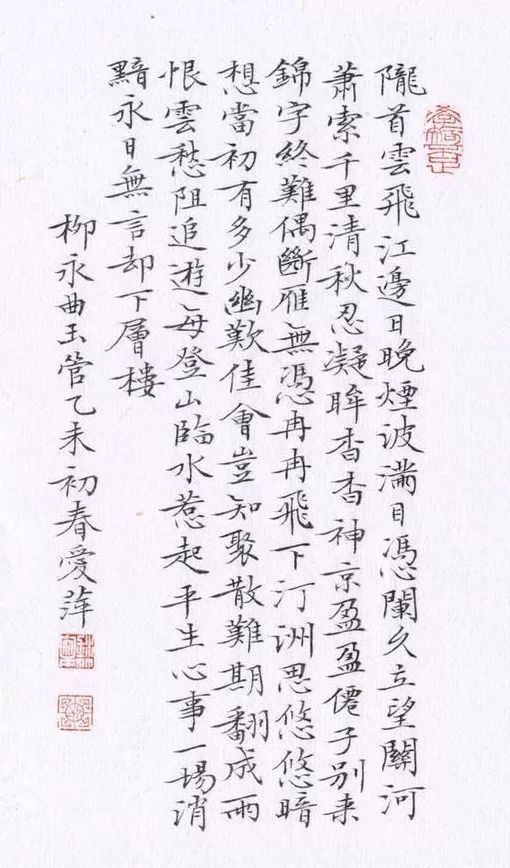 隴首雲飛江邊日晚煙波滿目憑闌久立望關河
蕭索千里清秋忍凝眸杳杳神京盈盈僊子別来
錦字終難偶斷雁無憑冉冉飛下汀洲思悠悠暗
想當初有多少幽歎佳會豈知聚散難期翻成雨
恨雲愁阻追遊每登山臨水惹起平生心事一場消
黯永日無言却下層樓
柳永曲玉管乙未初春愛萍